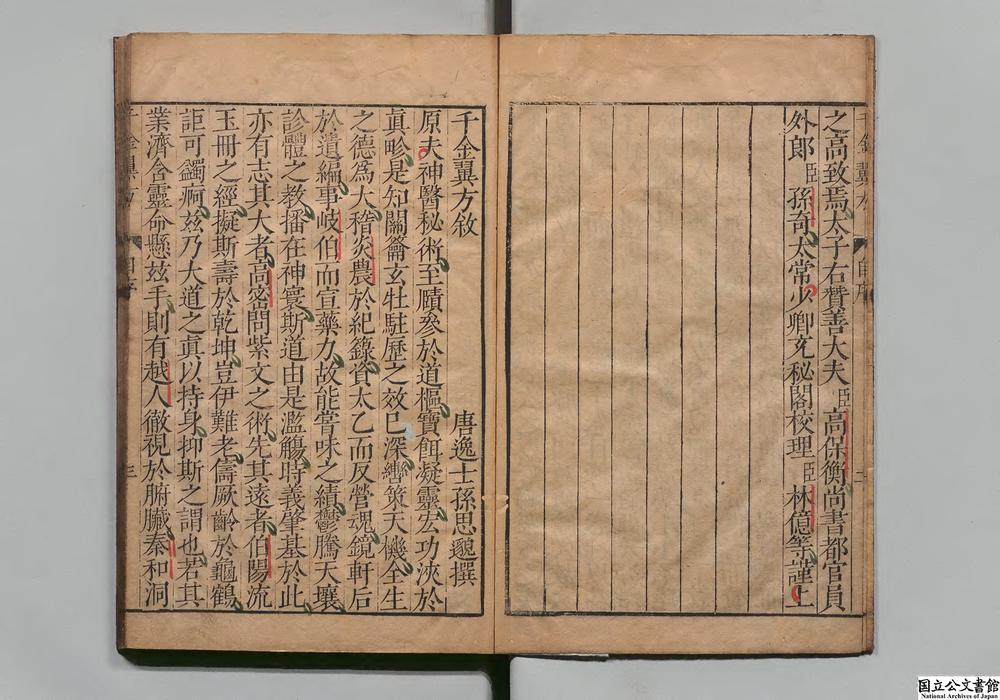 之高致焉太子右贊善大夫臣高保衡尚書都官員
外郎臣孫奇太常少卿充秘閣校理臣林億等謹上
千金翼方敘
唐逸士孫思邈撰
原夫神醫秘術至賾參於道樞寶餌凝靈宏功浹於
眞畛是知關籥玄牡駐歷之效已深轡策天機全生
之德爲大稽炎農於紀錄資太乙而反營魂鏡軒后
於遺編事岐伯而宣藥力故能嘗味之績鬱騰天壤
診體之教播在神寰斯道由是濫觴時義肇基於此
亦有志其大者高密問紫文之術先其遠者伯陽流
玉冊之經擬斯壽於乾坤豈伊難老儔厥齡於龜鶴
詎可蠲痾玆乃大道之眞以持身抑斯之謂也若其
業濟含靈命懸玆手則有越人徹視於腑臟秦和洞
三
国立公文書館
National Archives of Japan